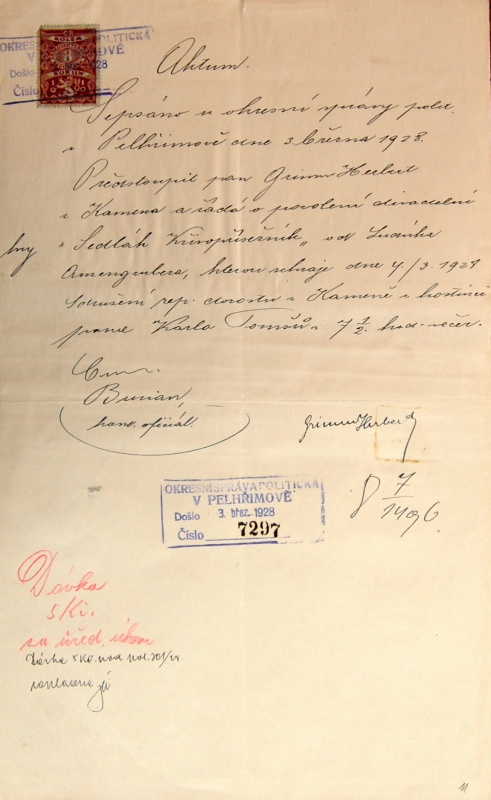 OKRESNÍ SPRÁVA POLITICKÁ
V PELHŘIMOVĚ
Došlo 1928
Číslo
KOLEK
8
KORUN
Aktum.
Sepsáno u okresní správy polit.
v Pelhřimově dne 3 března 1928.
Předstoupil pan Grimm Herbert
z Kamena a žádá o povolení divadelní
hry „Sedlák Křivopřísežník„ od Ludvíka
Anzengrubera, kterou sehraje dne 4/3. 1928
Sdružení rep. dorostu v Kameně v hostinci
pana Karla Tomšů v 7 1/2. hod. večer.
Burian,
kanc. oficiál.
Grimm Herbert
OKRESNÍ SPRÁVA POLITICKÁ
V PELHŘIMOVĚ
Došlo 3. břez. 1928
Číslo 7297
7
Dávka
5 Kč.
za úřed. úkon
Dávka 5 Kč. pod pol.
zaplacena